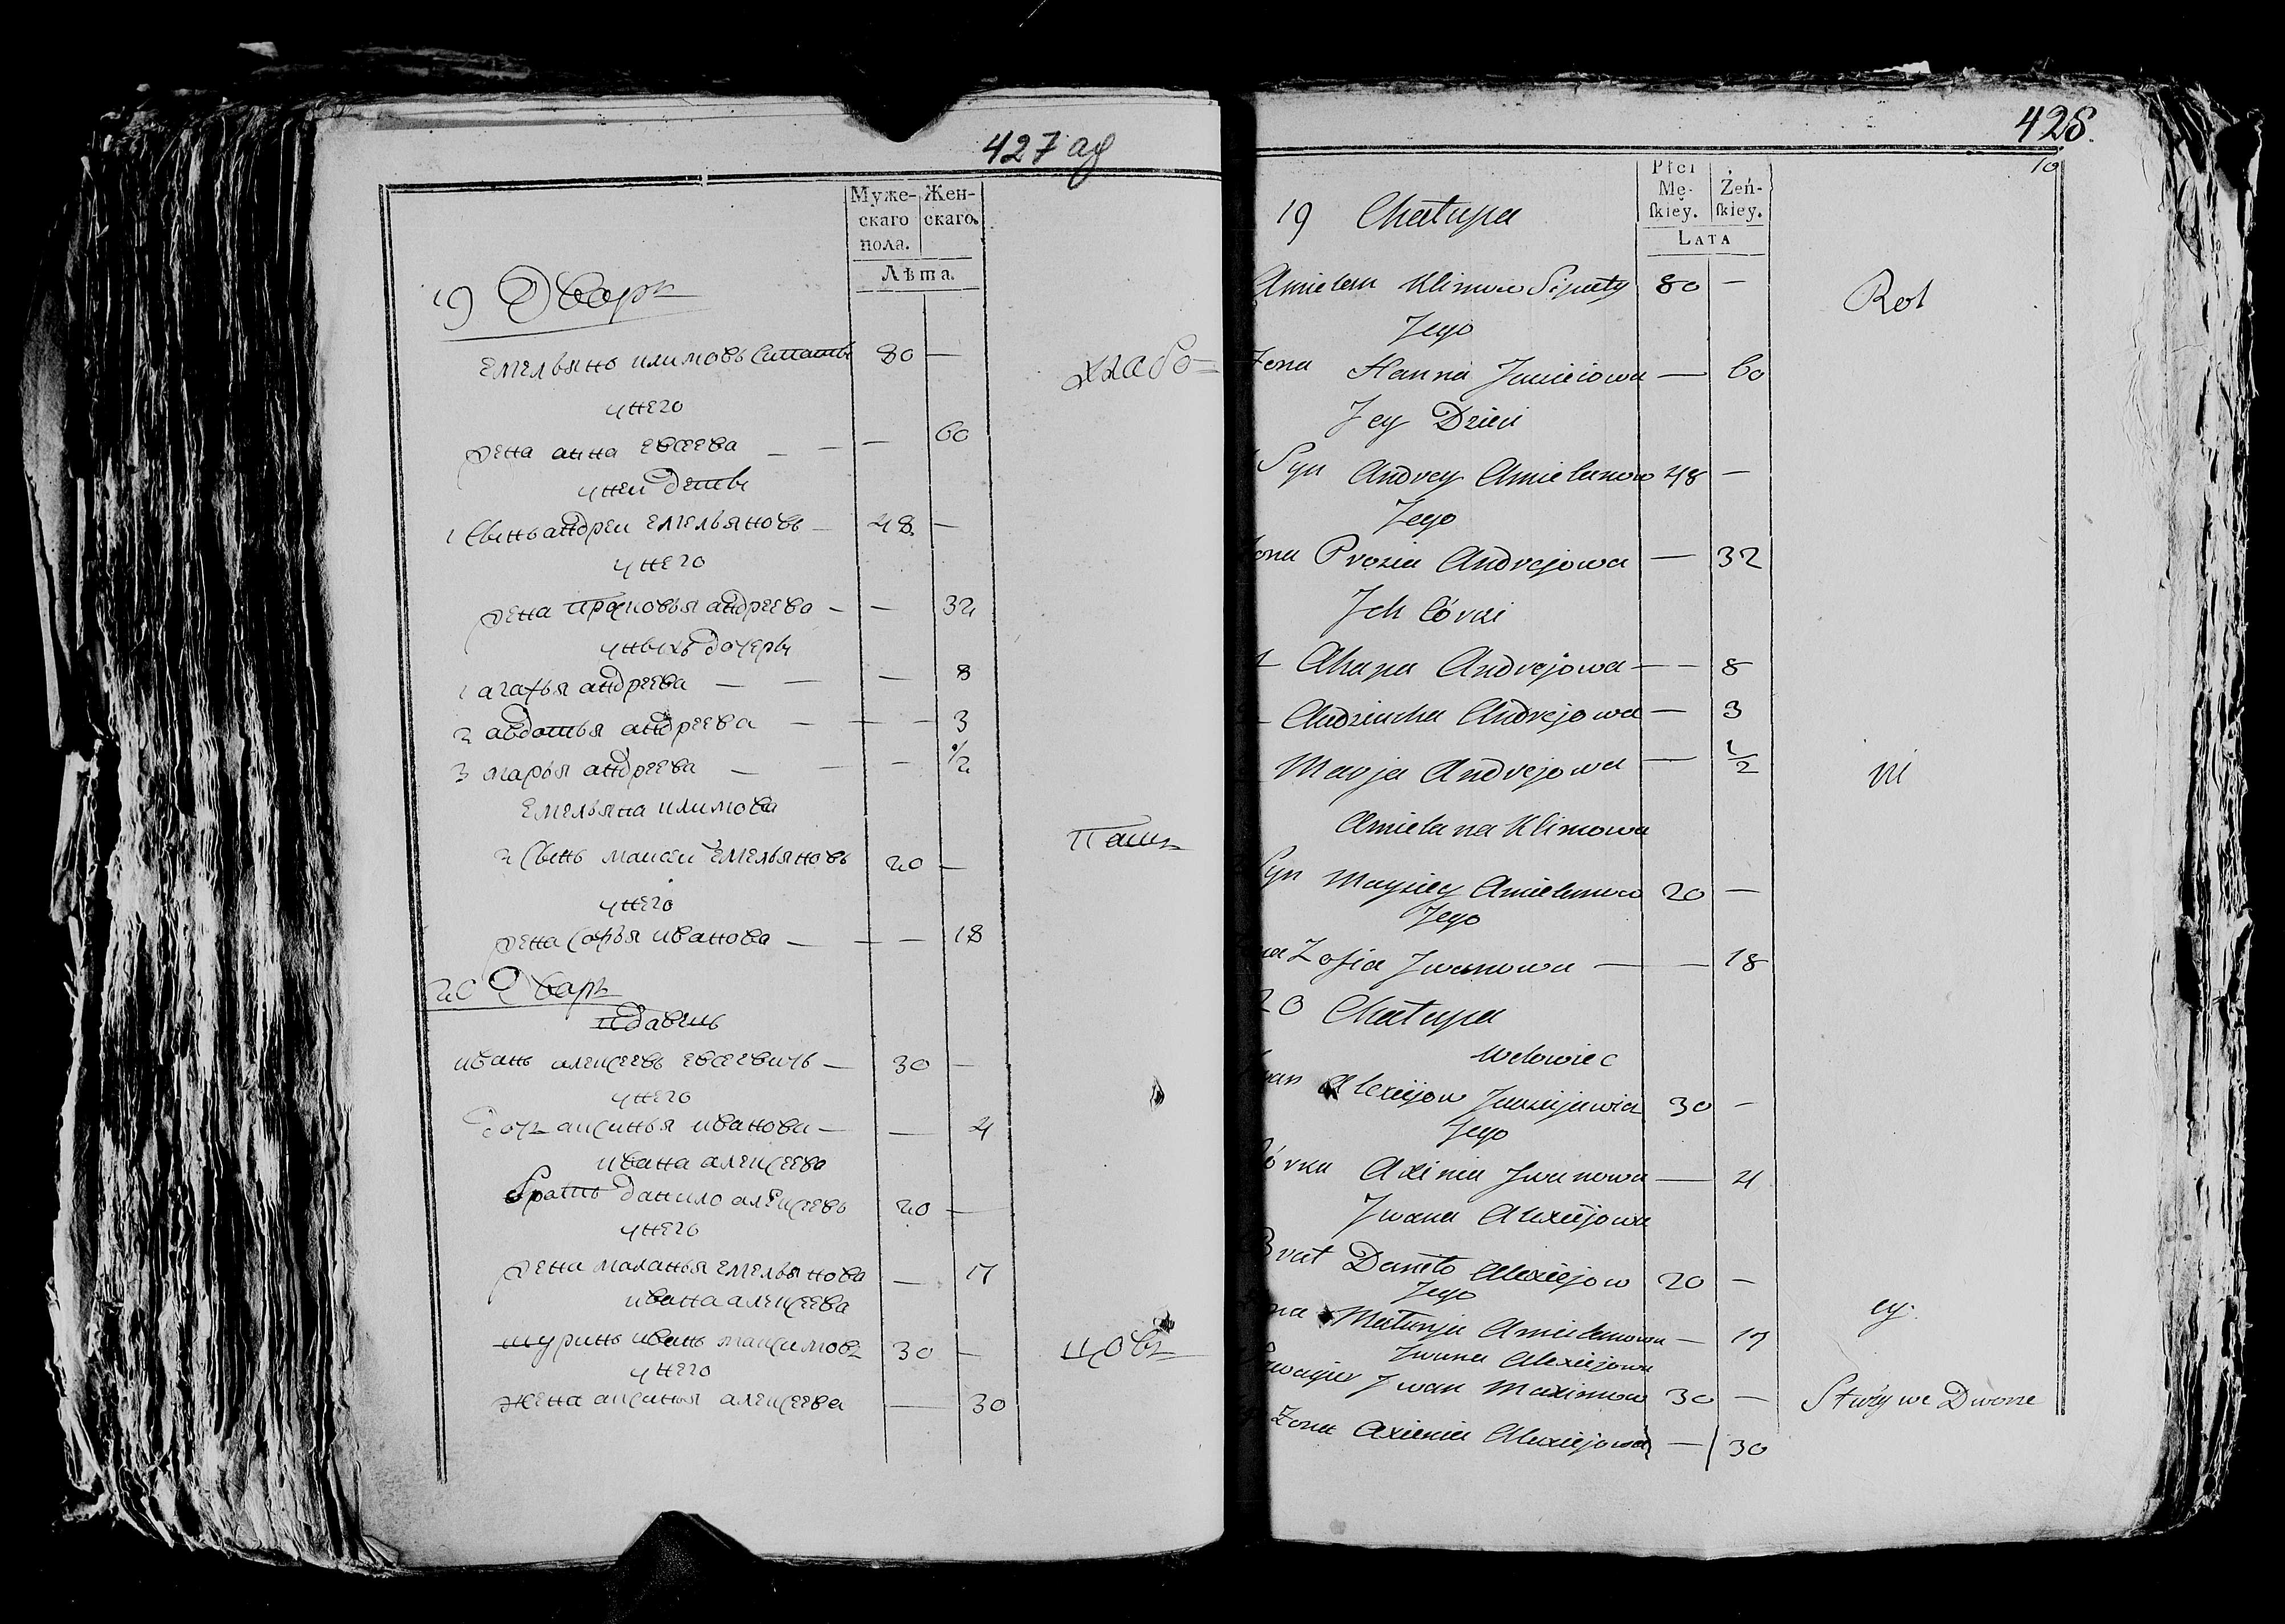 427 об
Муже- Жен-
скаго скаго.
пола.
Лѣта.
19 Дворъ
Емельянъ климовъ Сипатъ 80 —
унего
жена анна евсеева — — 60
уней дети
1 Сынъ андреи емельяновъ — 48 —
унего
жена прасковья андреева — — 32
уныхъ дочери
1 агафья андреева — — — 8
2 авдотья андреева — — — 3
3 марья андреева — — — 1/2
Емельяна климова
2 Сынъ маисеи емельяновъ 20 —
унего
жена софья иванова — — — 18
20 Дворъ
вдавець
иванъ алексеевъ евсеевичь — 30 —
унего
дочь аксинья иванова — — 4
ивана алексеева
братъ данило алексеевъ 20 —
унего
жена маланья емельянова — 17
ивана алексеева
шуринъ иванъ максимовъ 30 —
унего
жена аксинья алексеева — 30
хлабо=
Пашъ
цовъ
428.
10
Płci
Mę- Żeń-
ſkiey. ſkiey.
LATA
19 Chałupa
Amielan Klimow Siputy 80 —
Jego
Żona Hanna — 60
Jey Dzieci
Syn Andrey Amielanow 48 —
Jego
ona Prozia Andrejowa — 32
Ich Córki
1 Ahapa Andrejowa — — 8
— Audziucha Andrejowa — 3
Marja Andrejowa — 1/2
Amielana Klimowa
Syn Mayziey Amielanow 20 —
Jego
na Zofia Iwanowa — — 18
20 Chałupa
Wdowiec
wan Alexiejow 30 —
Jego
Córka Axinia Iwanowa — 4
Iwana Alexiejowa
Brat Daniło Alexiejow 20 —
Jego
na Małanja Amielanowa — 17
Iwana Alexiejowa
Szwagier Iwan Maximow 30 —
Żona Axienia Alexiejowa — 30
Rol
ni
cy.
Służy we Dworze